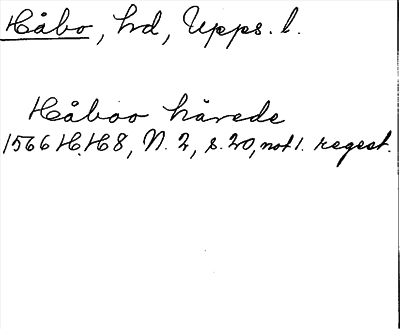 Håbo, hd, Upps. l.
Håboo härede
1566 H.H 8, N. 2, s. 20, not 1. regest.